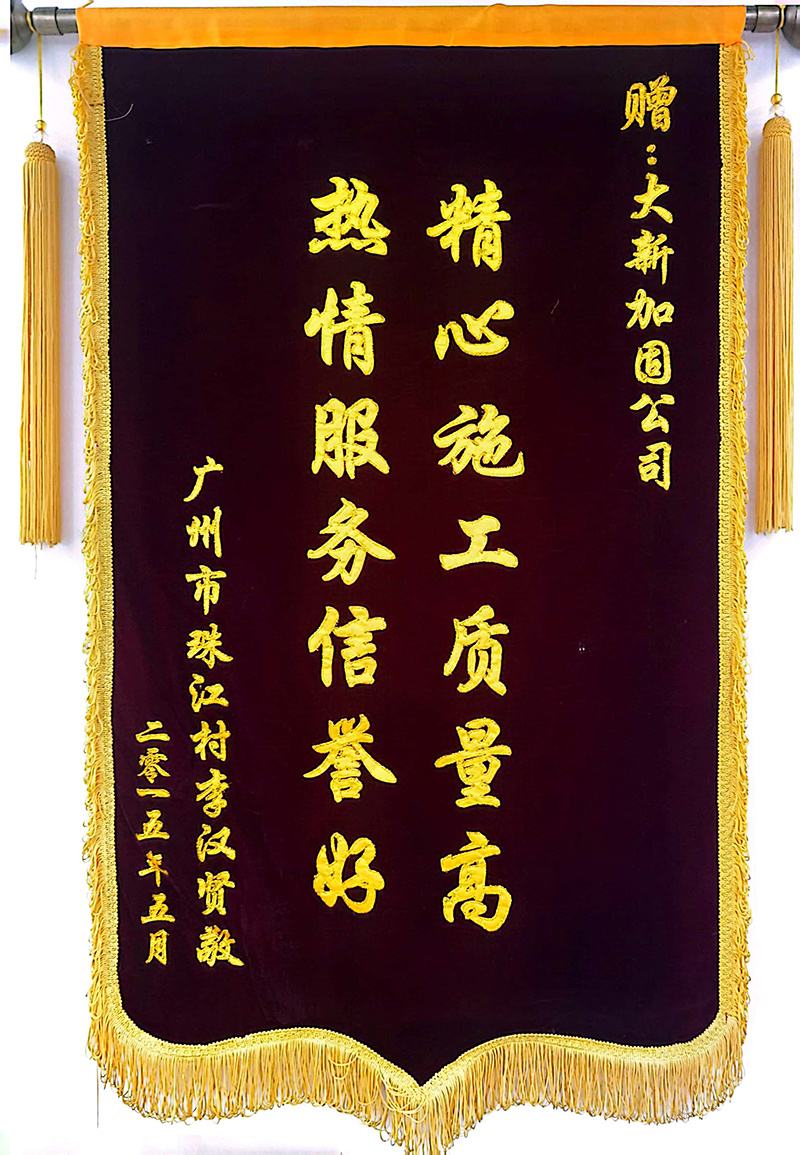 赠：大新加固公司
精心施工质量高
热情服务信誉好
广州市珠江村李汉贤敬
二零一五年五月